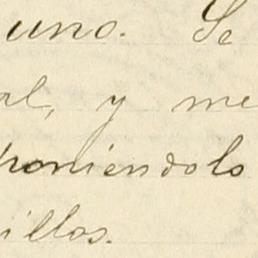 uno. Se
al, y me
poniendolo
illos.